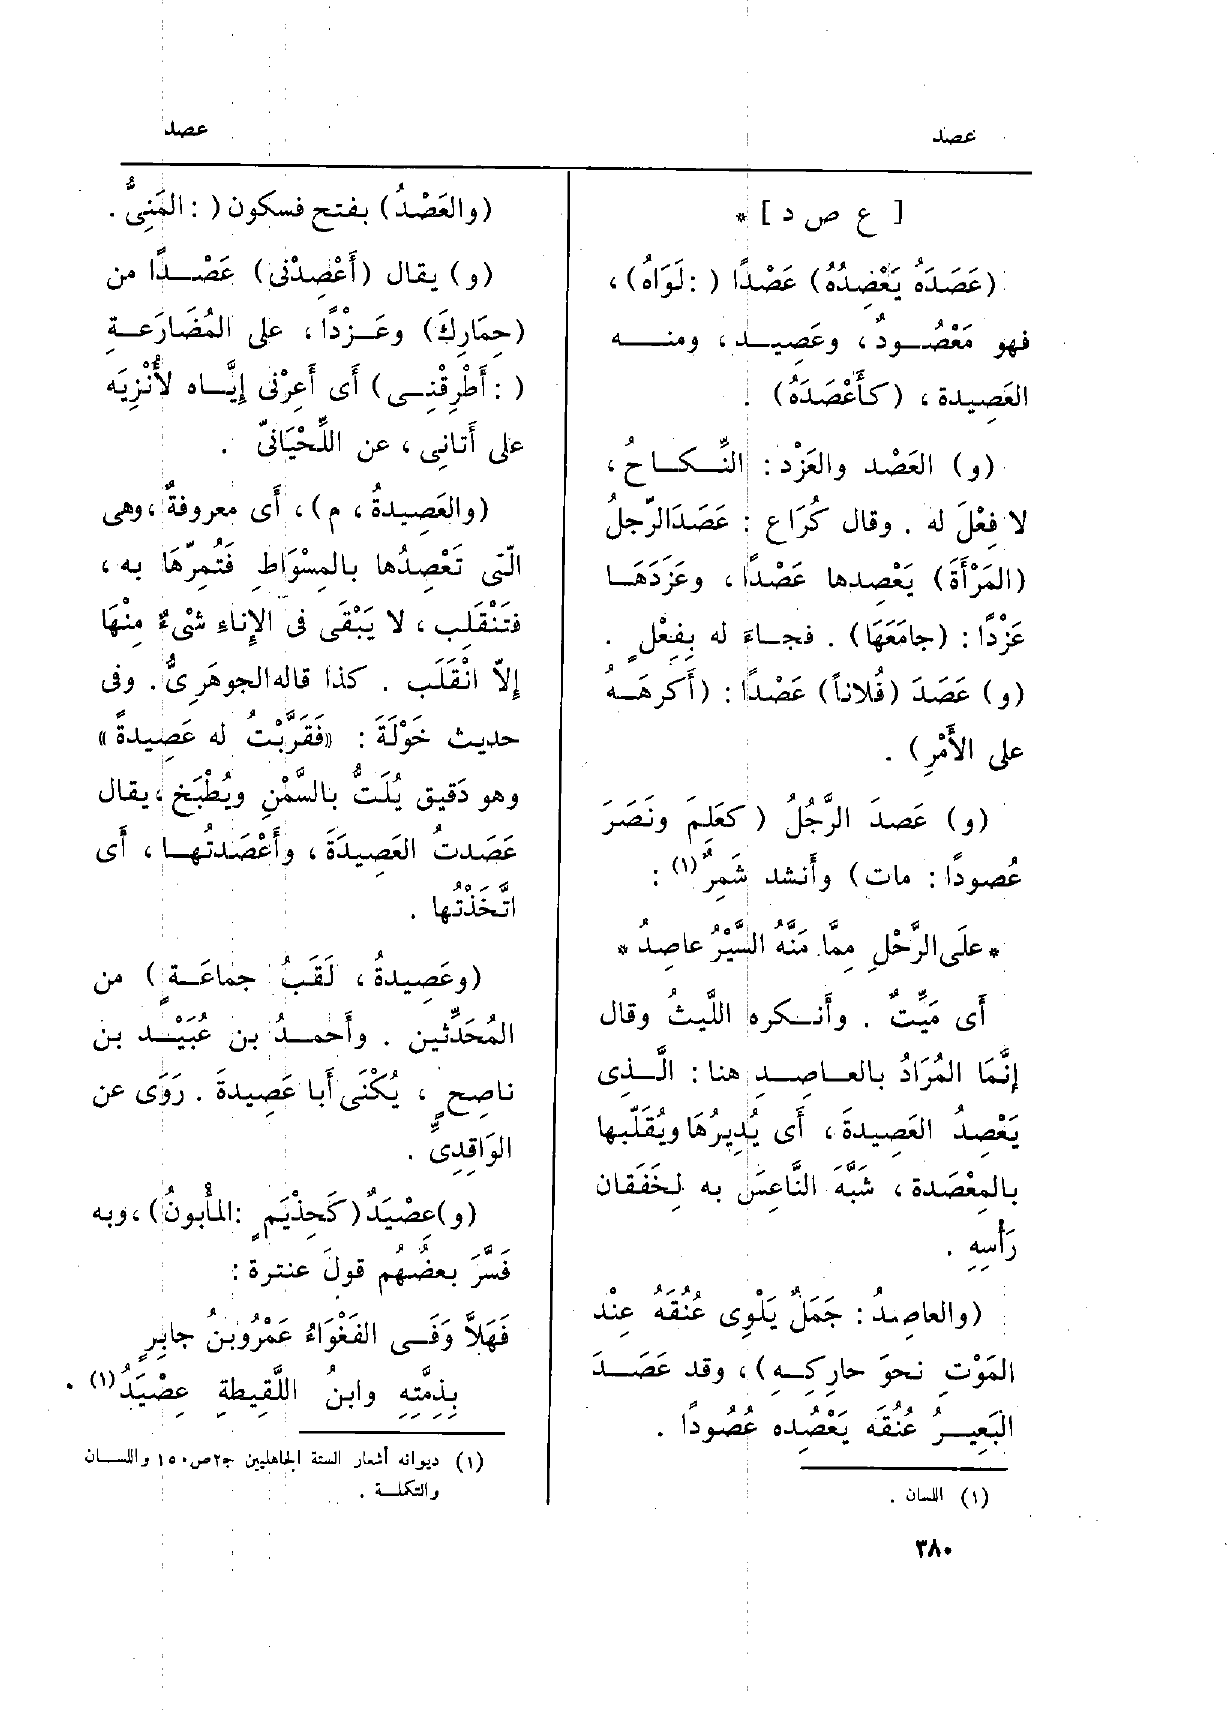 عصد
عصد
[ ع ص د ] *
(عَصَدَهُ يَعْصِدُهُ) عَصْدًا ( : لَوَاهُ) ،
فهو مَعْصُـودٌ ، وعَصِيـد ، ومنـه
العَصِيدة ، (كأَعْصَدَهُ) .
(و) العَصْد والعَزْد : النِّـكـاحُ ،
لا فِعْلَ له . وقال كُرَاع : عَصَدَ الرّجلُ
(المَرْأَةَ) يَعْصِدها عَصْدًا ، وعَزَدَهَـا
عَزْدًا : (جامَعَهَا) . فجـاءَ له بِفِعْلٍ .
(و) عَصَدَ (فُلاناً) عَصْدًا : (أَكرهَـهُ
على الأَمْرِ) .
(و) عَصدَ الرَّجُلُ ( كعَلِمَ ونَصَرَ
عُصودًا : مات) وأَنشد شَمِرٌ(١) :
* علَى الرَّحْلِ مِمَّا مَنَّهُ السَّيْرُ عاصِدُ *
أَى مَيِّتٌ . وأَنـكره الليثُ وقال
إِنَّمَا المُرَادُ بالعـاصـدِ هنا : الَّـذِى
يَعْصِدُ العَصِيدةَ ، أَى يُدِيرُهَا ويُقَلِّبها
بالمِعْصَدة ، شَبَّهَ النَّاعِسَ به لِخَفَقَان
رَأْسِهِ .
(والعاصِدُ : جَمَلٌ يَلْوِى عُنُقَهُ عِنْد
المَوْتِ نحوَ حارِكِـهِ) ، وقد عَصَـدَ
البَعِيـرُ عُنُقَه يَعْصُِده عُصُودًا .
(١) اللسان .
(والعَصْدُ) بفتح فسكون ( : المَنِىُّ .
(و) يقال (أَعْصِدْنى) عَصْـدًا من
(حِمَارِكَ) وعَـزْدًا ، على المُضَارَعـةِ
( : أَطْرِقْنِـى) أَى أَعِرْنى إِيَّـاه لأُنْزِيَه
على أَتانِى ، عن اللِّحْيَانىّ .
(والعَصِيدةُ ، م) ، أَى معروفةٌ ، وهى
الّتى تَعْصِدُها بالمِسْوَاطِ فَتُمِرّهَا به ،
فتَنْقَلِب ، لا يَبْقَى فى الإِناءِ شىْءٌ مِنْهَا
إِلاّ انْقَلَب . كذا قاله الجوهَرِىُّ . وفى
حديث خَوْلَةَ : «فَقَرَّبْتُ له عَصِيدةً»
وهو دَقيق يُلَتُّ بالسَّمْنِ ويُطْبَخ ، يقال
عَصَدتُ العَصِيدَةَ ، وأَعْصَدتُهـا ، أَى
اتَّخَذْتُها .
(وعَصِيدةُ ، لَقَبُ جماعَـةٍ) من
المُحَدِّثين . وأَحمـدُ بن عُبَيْـد بن
ناصِحٍ ، يُكْنَى أَبا عَصِيدةَ . رَوَى عن
الوَاقِدِىِّ .
(و)عِصْيَدٌ(كَحِذْيَمٍ : المأْبونُ) ، وبه
فَسَّرَ بعضُهُم قولَ عنترة :
فَهَلاَّ وَفَـى الفَغْوَاءُ عَمْرُو بنُ جابِرٍ
بِذِمَّتِهِ وابنُ اللَّقِيطةِ عِصْيَدُ(١) .
(١) ديوانه أشعار الستة الجاهليين ج٢ص١٥٠ واللسـان
والتكلـة .
٣٨٠